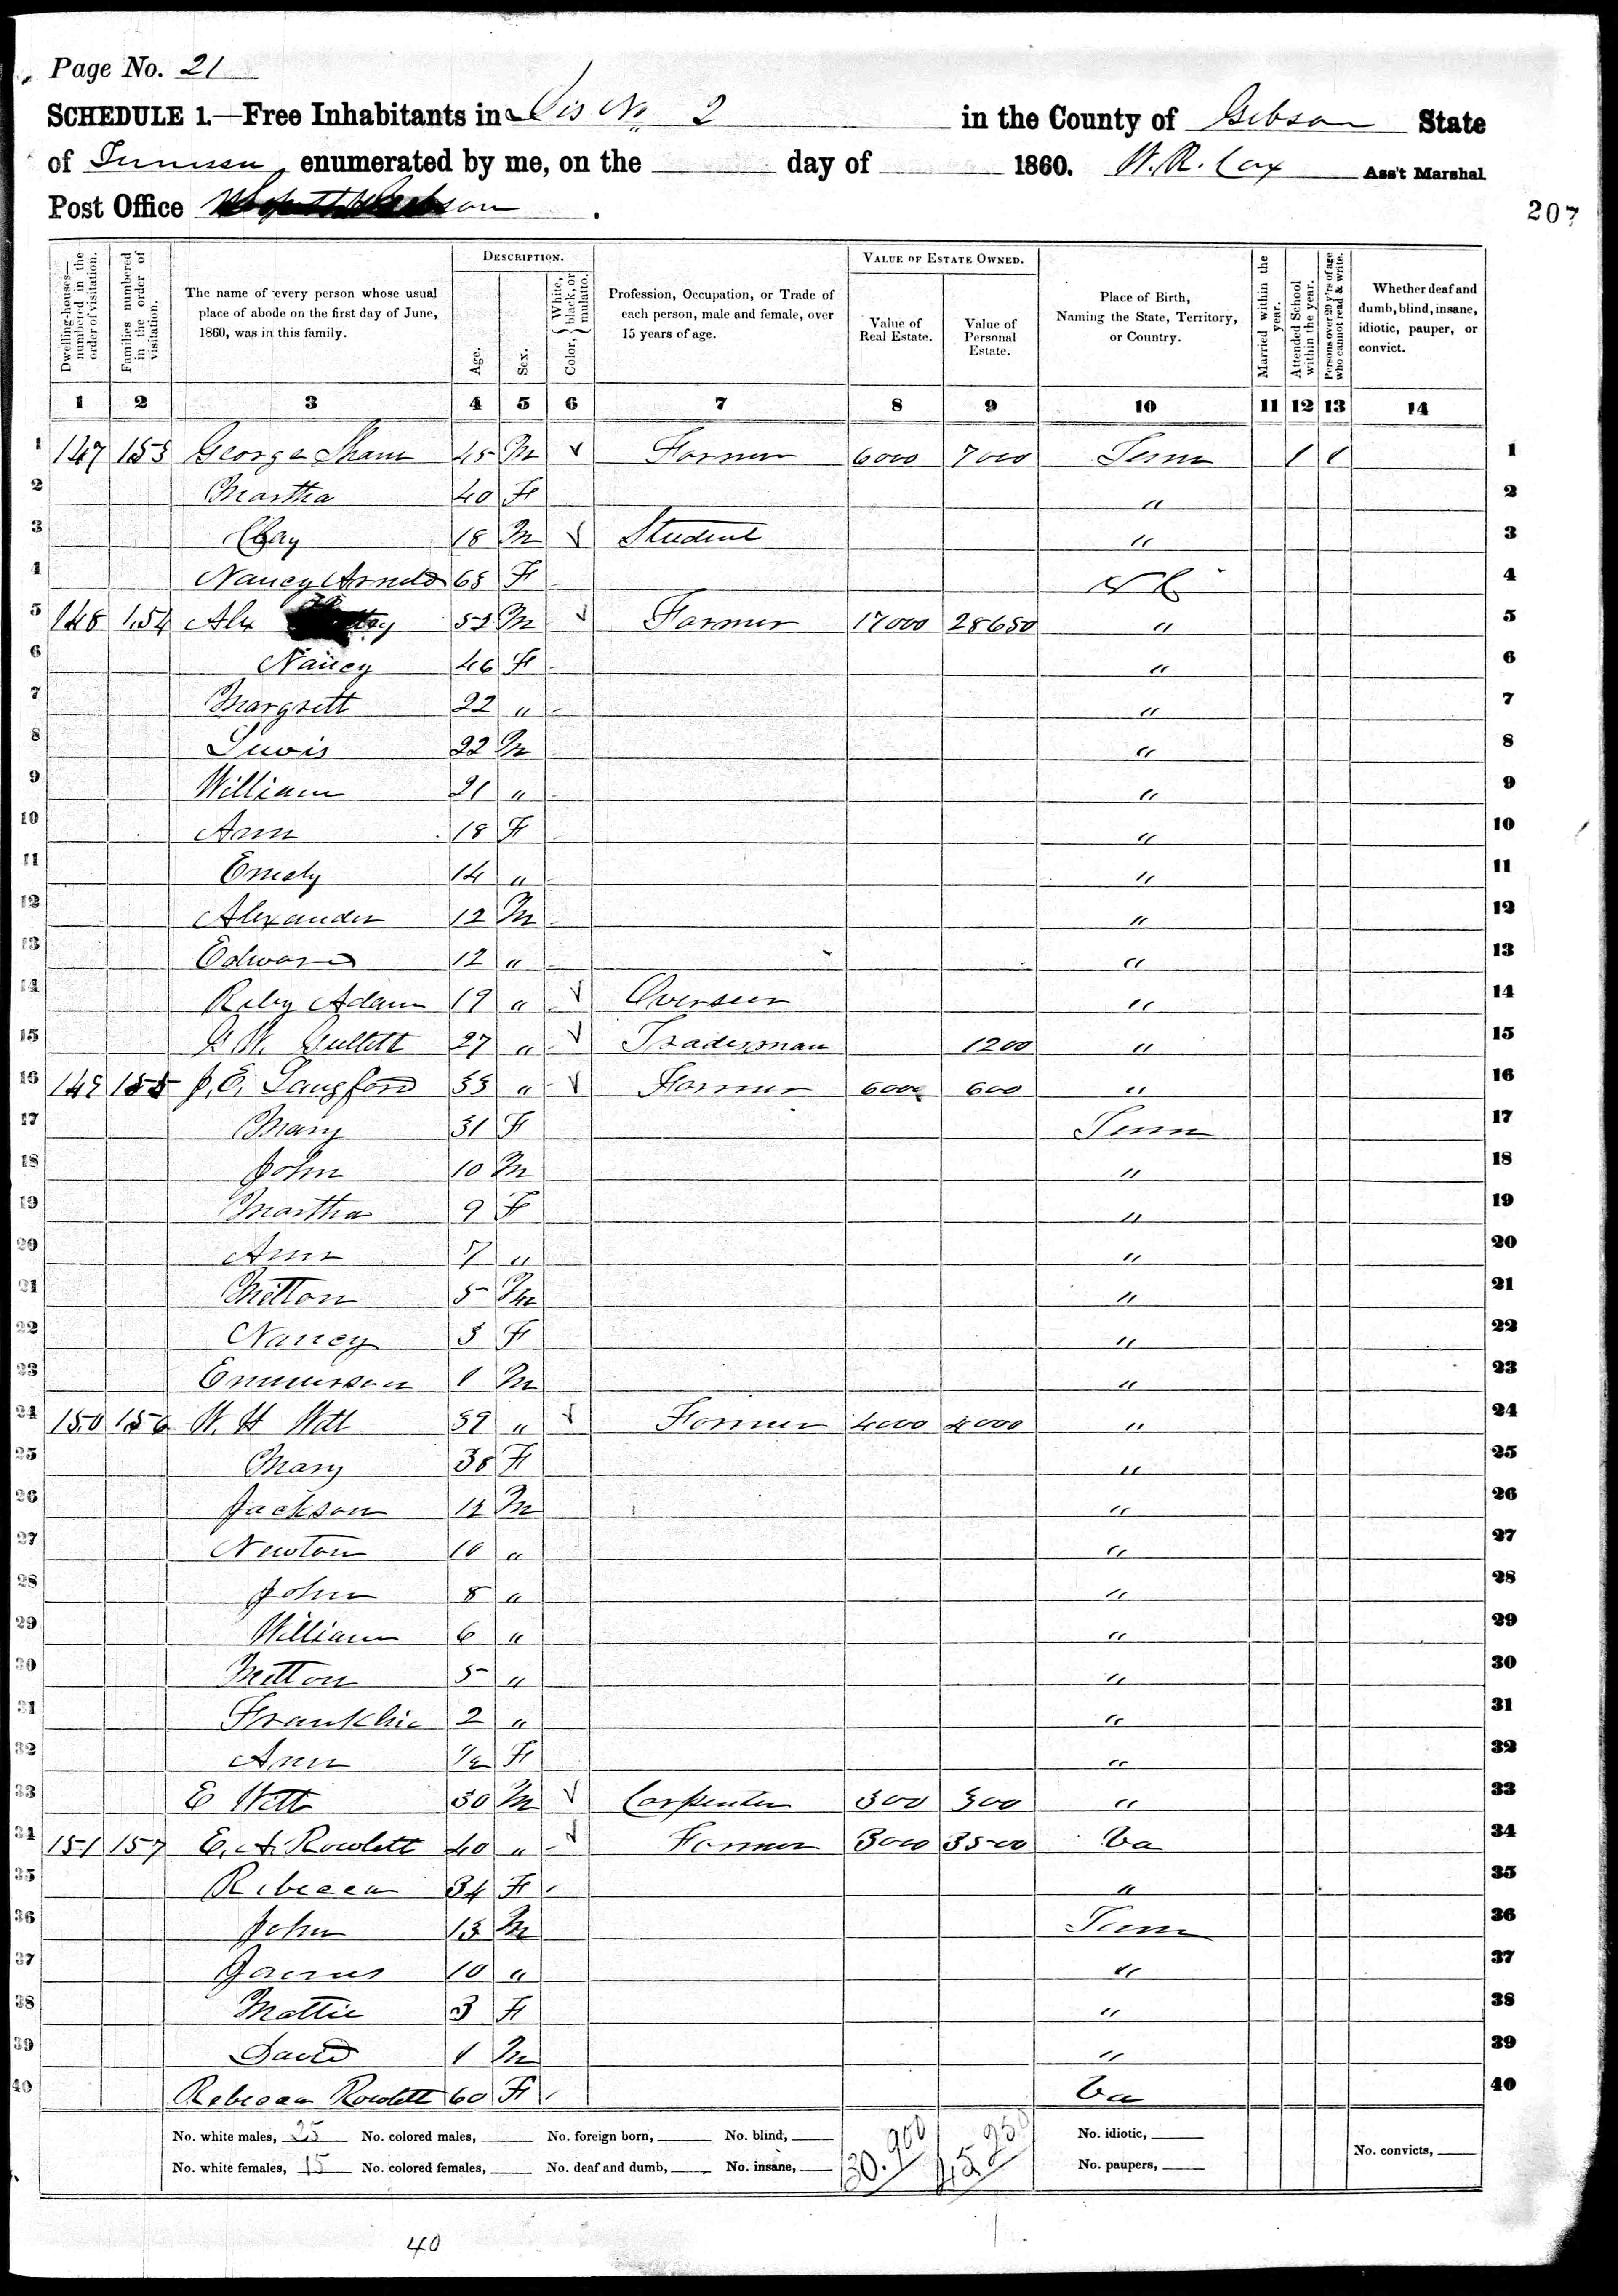 Page No. 21
SCHEDULE 1.—Free Inhabitants in Dis No 2 in the County of Gibson State
of Tennessee enumerated by me, on the day of 1860. W. R. Cox Ass't Marshal
Post Office
207
Dwelling-houses—numbered in the order of visitation.
Families numbered in the order of visitation.
The name of every person whose usual place of abode on the first day of June, 1860, was in this family.
DESCRIPTION.
Age.
Sex.
Color, { White, black, or mulatto.
Profession, Occupation, or Trade of each person, male and female, over 15 years of age.
VALUE OF ESTATE OWNED.
Value of Real Estate.
Value of Personal Estate.
Place of Birth, Naming the State, Territory, or Country.
Married within the year.
Attended School within the year.
Persons over 20 y'rs of age who cannot read & write.
Whether deaf and dumb, blind, insane, idiotic, pauper, or convict.
1 2 3 4 5 6 7 8 9 10 11 12 13 14
1 147 153 George 45 M Farmer 6000 7000 Tenn 1 1 1
2 Martha 40 F " 2
3 Clay 18 M Student " 3
4 Nancy Arnold 68 F N C 4
5 148 154 Alex 52 M Farmer 17000 28650 " 5
6 Nancy 46 F " 6
7 Margrett 22 " " 7
8 Lewis 22 M " 8
9 William 21 " " 9
10 Ann 18 F " 10
11 Emely 14 " " 11
12 Alexander 12 M " 12
13 Edward 12 " " 13
14 Riley Adam 19 " Overseer " 14
15 G W. Cullett 27 " Tradesman 1200 " 15
16 149 155 J. E. Langford 33 " Farmer 600 600 " 16
17 Mary 31 F Tenn 17
18 John 10 M " 18
19 Martha 9 F " 19
20 Ann 7 " " 20
21 Milton 5 M " 21
22 Nancy 3 F " 22
23 Emmerson 1 M " 23
24 150 156 W. H Witt 39 " Farmer 4000 4000 " 24
25 Mary 38 F " 25
26 Jackson 12 M " 26
27 Newton 10 " " 27
28 John 8 " " 28
29 William 6 " " 29
30 Milton 5 " " 30
31 Franklin 2 " " 31
32 Ann 1/2 F " 32
33 E Witt 30 M Carpenter 300 300 " 33
34 151 157 E. A. Rowlett 40 " Farmer 3000 3500 Va 34
35 Rebecca 34 F " 35
36 John 13 M Tenn 36
37 James 10 " " 37
38 Mattie 3 F " 38
39 David 1 M " 39
40 Rebecca Rowlett 60 F Va 40
No. white males, 25 No. colored males, No. foreign born, No. blind, 30.900 45 250 No. idiotic,
No. white females, 15 No. colored females, No. deaf and dumb, No. insane, No. paupers, No. convicts,
40